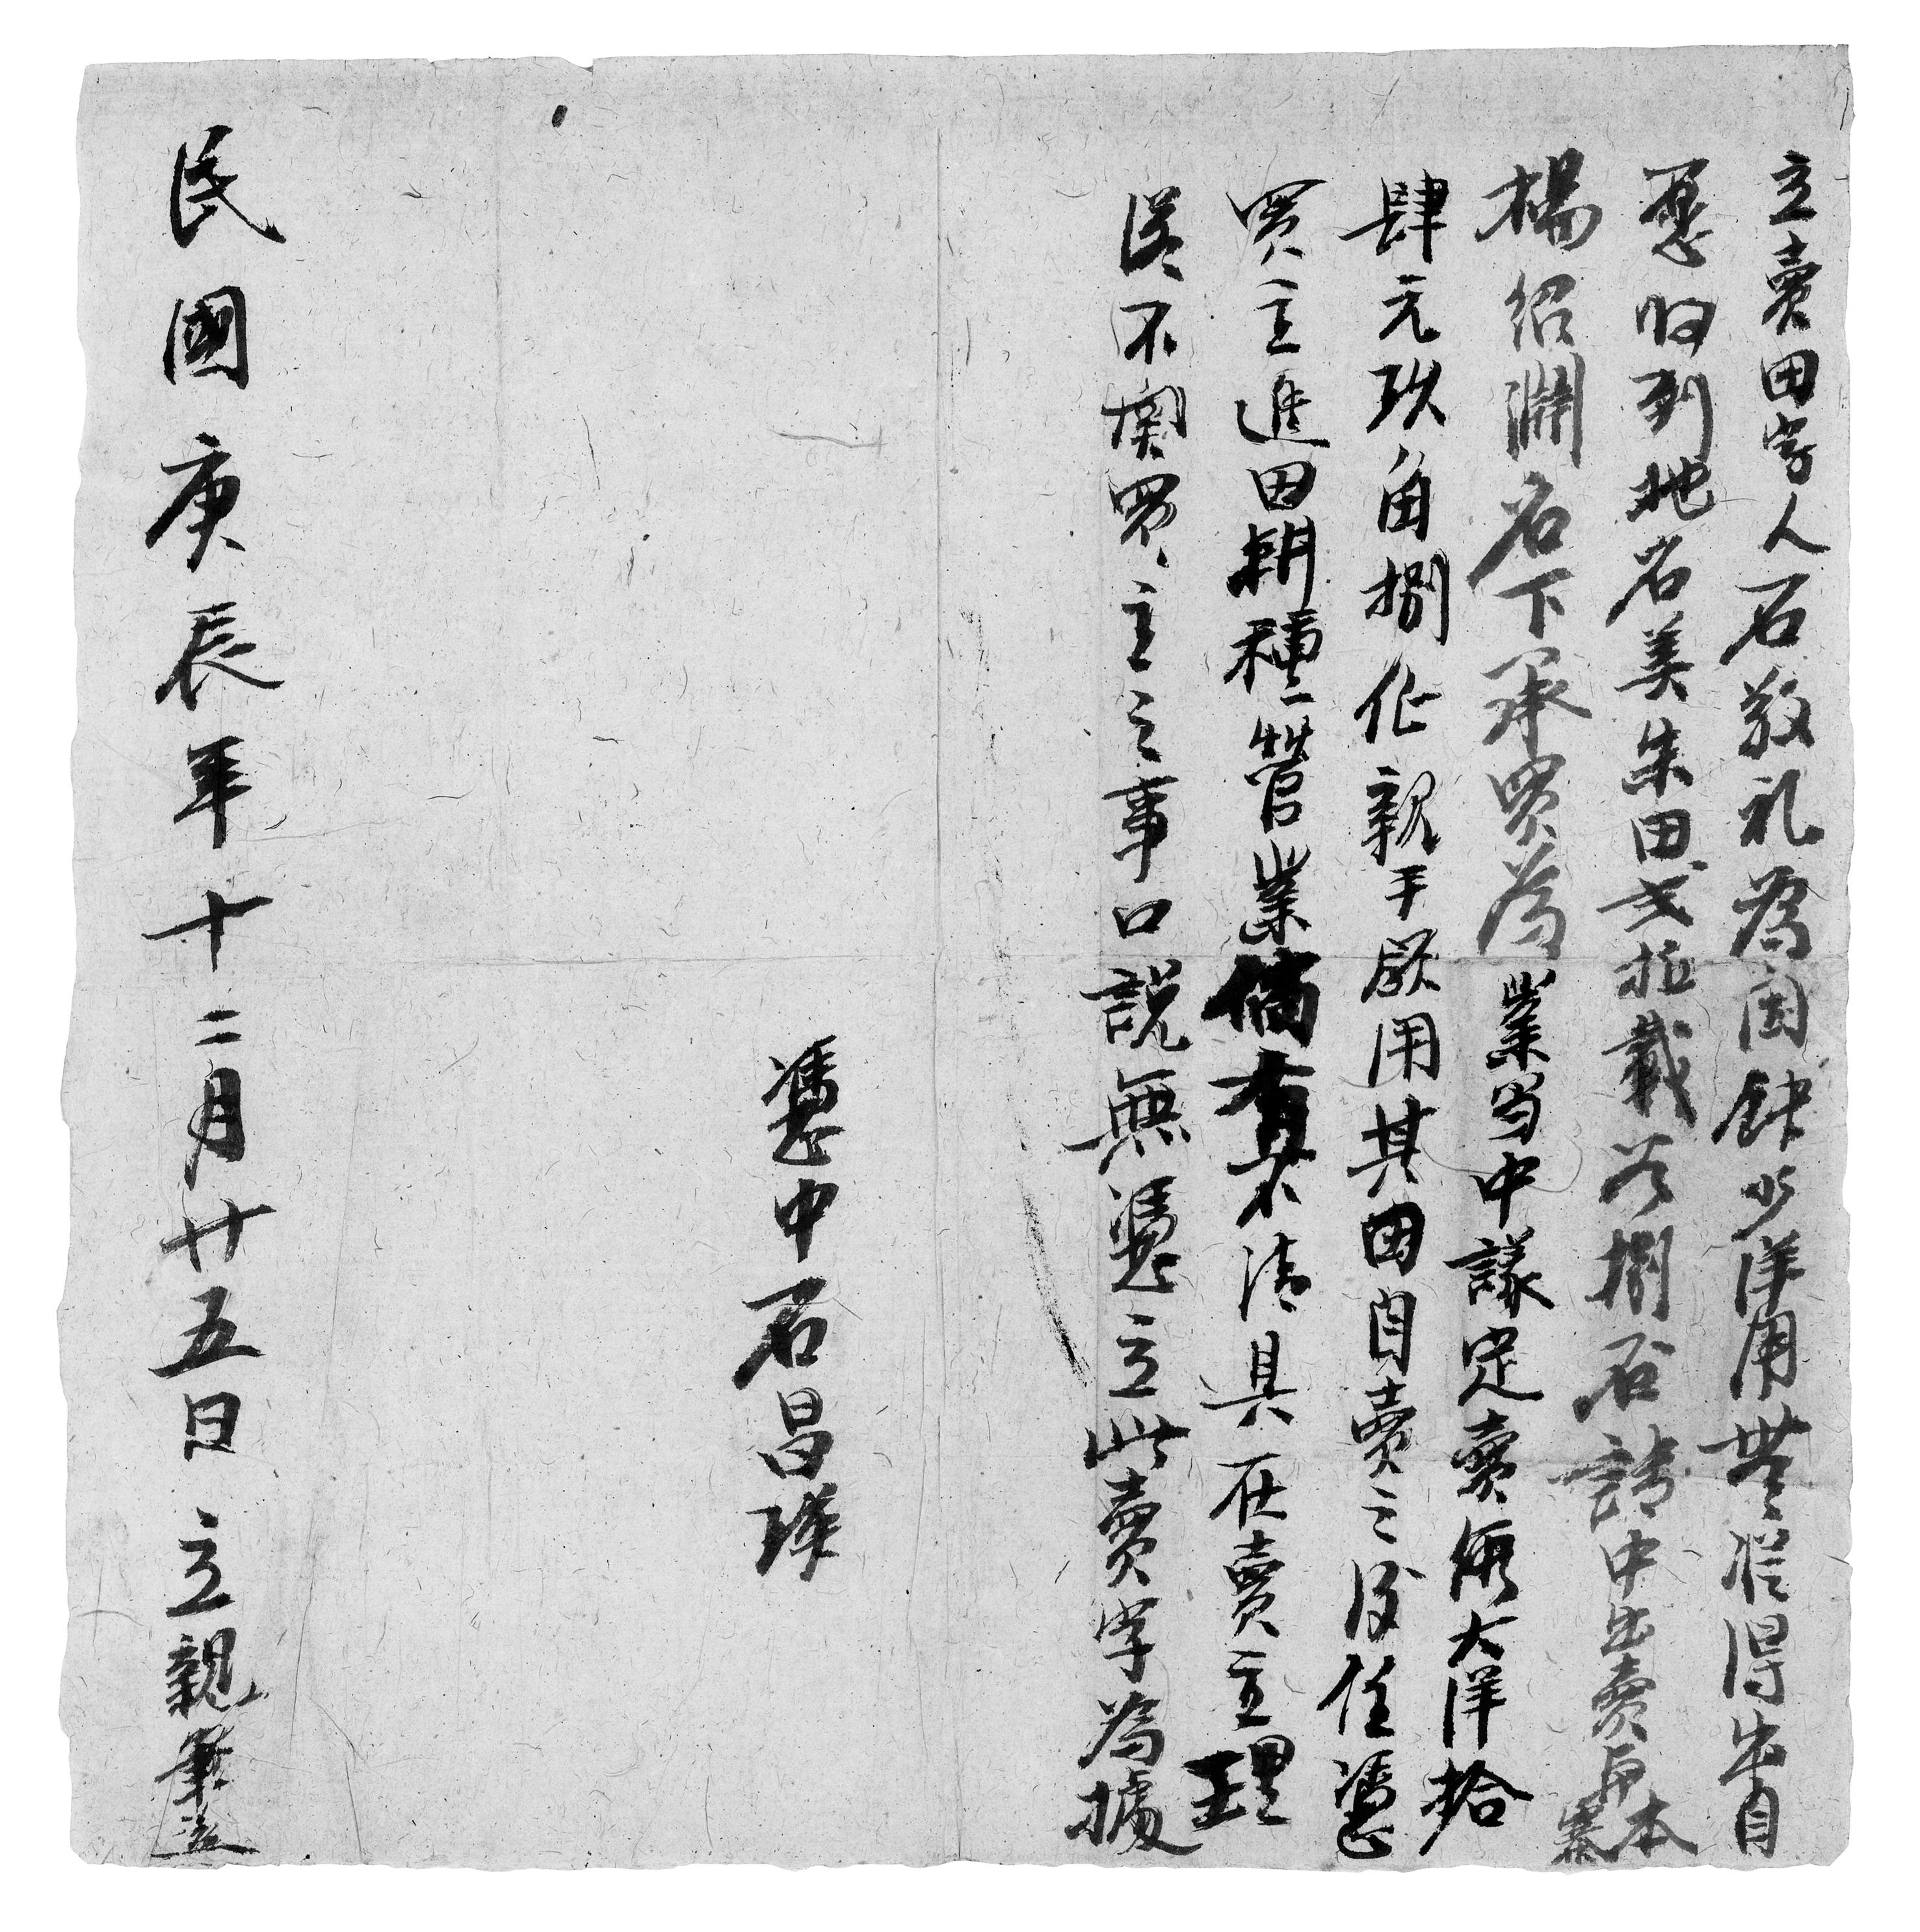 立賣田字人石敬礼為因缺少洋用無從得出自
愿將到地名美朱田弍坵載谷捌石請中出賣與本寨
楊紹淵名下承買為業當中議定賣價大洋拾
肆元玖角捌仙親手領用其田自賣之後任憑
買主進田耕種管業倘有不清具在賣主理
落不関買主之事口說無憑立此賣字為據
憑中石昌璋
民國庚辰年十二月廿五日立親筆立